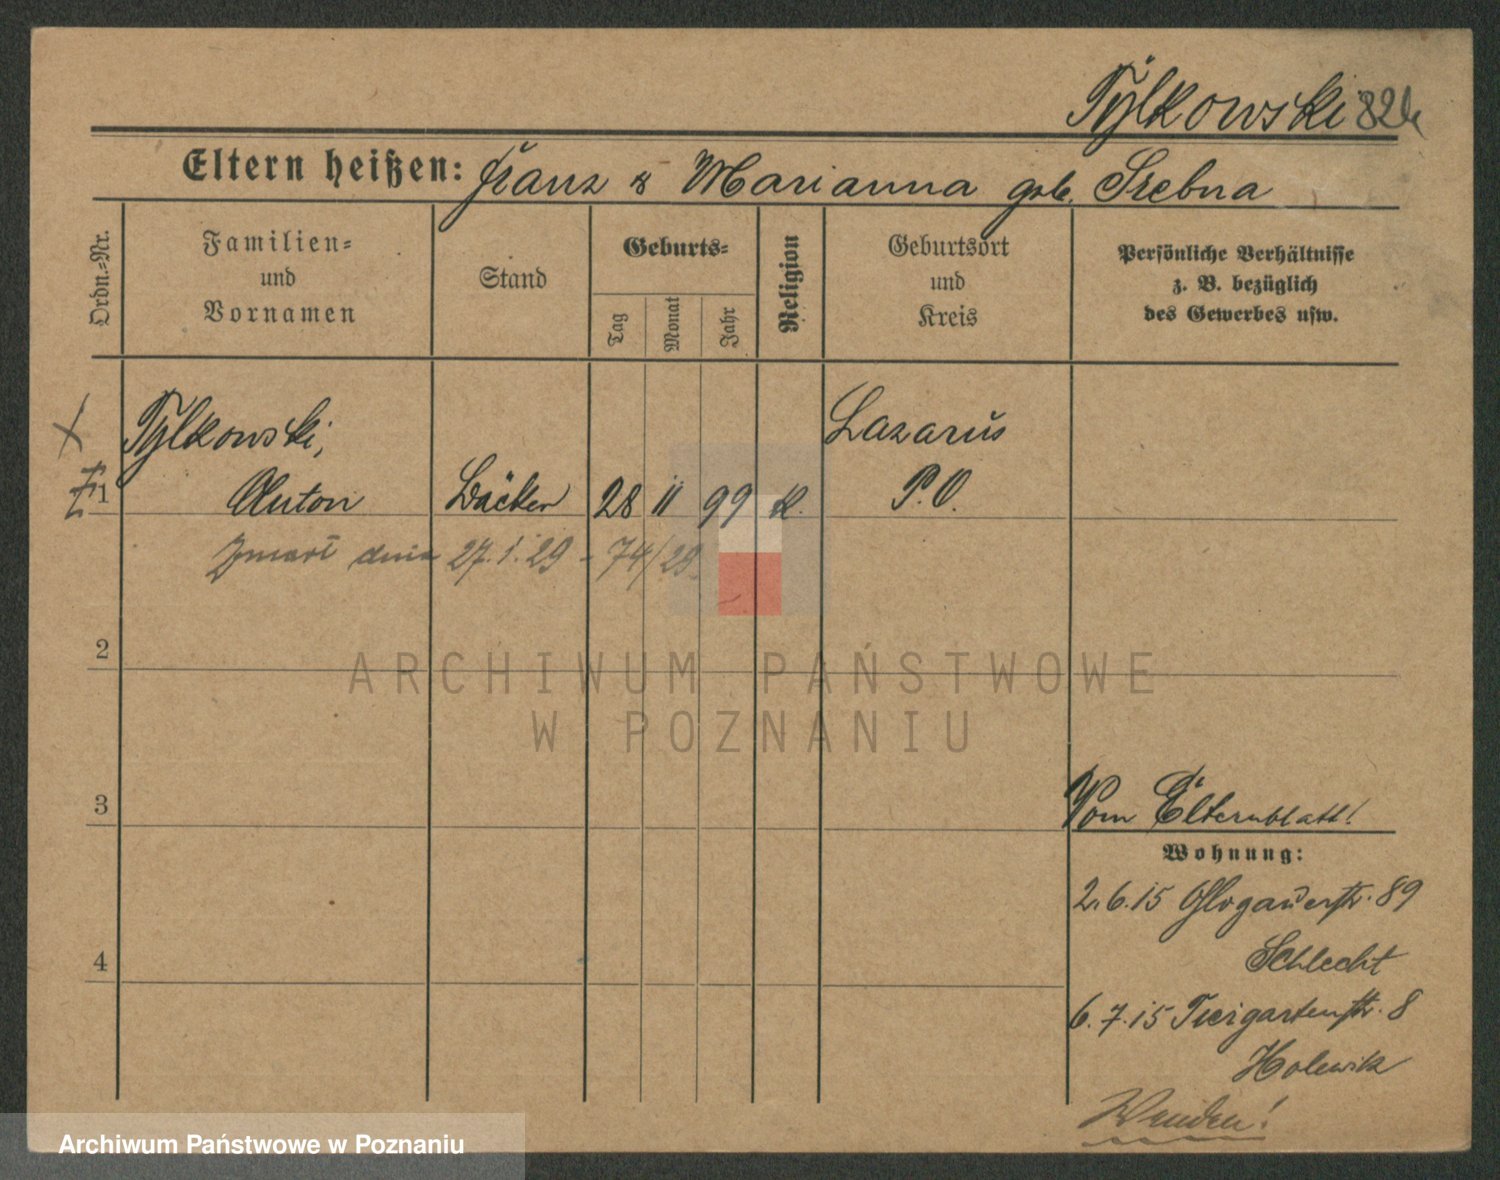 Tylkowski
Eltern heißen: Franz & Marianna geb. Srebna
Ordn.-Nr.
Familien-
und
Vornamen
Stand
Geburts-
Tag
Monat
Jahr
Religion
Geburtsort
und
Kreis
Persönliche Verhältnisse
z. B. bezüglich
des Gewerbes usw.
Tylkowski,
Lazarus
1 Anton Bäcker 28 11 99 K. P.O.
Zmarł dnia 27.1.29 - 74/29
2
ARCHIWUM PAŃSTWOWE
W POZNANIU
3
Vom Elternblatt!
Wohnung:
2.6.15 Glogauerstr. 89
Schlecht
4
6.7.15 Tiergartenstr. 8
Holewik
Wenden!
Archiwum Państwowe w Poznaniu